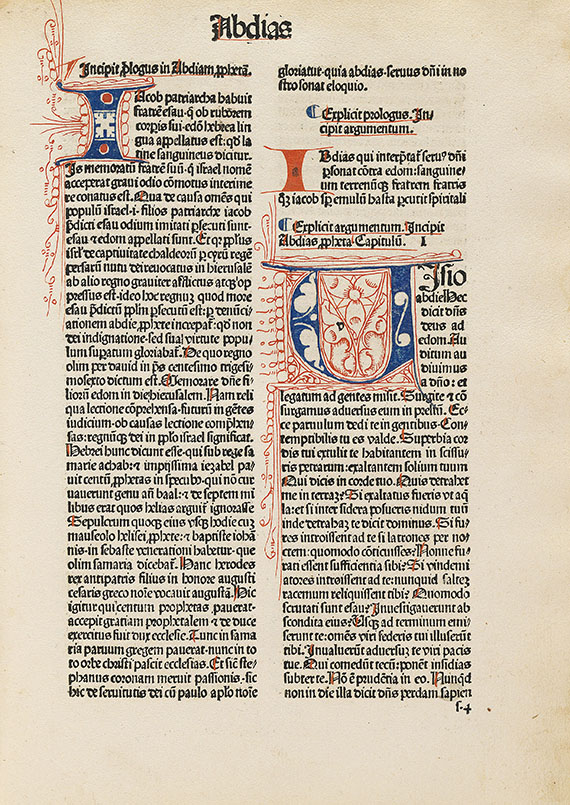 Abdias
Incipit ꝓlogus in Abdiam ꝓphetā.
Iacob patriarcha habuit
fratrē esau: ꝙ ob ruborem
corpis sui edō hebrea lin
gua appellatus est: qd̓ la
tine sanguineus dicitur.
Is memoratū fratrē suū: ꝙ israel nomē
acceperat gravi odio cōmotus interime
re conatus est. Qua de causa omēs qui
populū israel .i. filios patriarche iacob
p̄dicti esau odium imitati ꝑsecuti sunt:
esau ⁊ edom appellati sunt. Et qꝛ ꝓpsus
isrl̓ de captiuitate chaldeorū ꝑ cyrū regē
persarū nutu dei reuocatus in hierusalē
ab alio regno grauiter afflictus atqꝫ op
pressus est: ideo hoc regnuꝫ quod more
esau p̄dictū ppl̓m ꝑsecutū est: ꝑ denūci/
ationem abdie ꝓphete increpat̄: qd̓ non
dei indignatione: sed sua virtute popu
lum supatum gloriabat̄. De quo regno
olim per dauid in p̄s centesimo trigesi/
mosexto dictum est. Memorare dn̄e fi
liorū edom in die hierusalem. Nam reli
qua lectione cōprehensa: futurū in gētes
iudicium: ob causas lectione comp̄hen/
sas: regnūqꝫ dei in ppl̓o israel significat.
Hebrei hunc dicunt esse: qui sub rege sa
marie achab: ⁊ impijssima iezabel pa/
uit centū ꝓphetas in specubꝰ: qui nō cur
uauerunt genu añ baal: ⁊ de septem mi
libus erat quos helias arguit̄ ignorasse
Sepulcrum quoqꝫ eius vsqꝫ hodie cuꝫ
mausoleo helisei ꝓphete: ⁊ baptiste iohā
nis: in sebaste venerationi habetur: que
olim samaria dicebat̄. Hanc herodes
rex antipatris filius in honore augusti
cesaris greco noīe vocauit augustā. Hic
igitur qui centum prophetas pauerat:
accepit gratiam prophetalem: ⁊ de duce
exercitus fuit dux ecclesie. Tunc in sama
ria paruum gregem pauerat: nunc in to
to orbe christi pascit ecclesias. Et sic̄ ste/
phanus coronam meruit passionis: sic
hic de seruitutis dei cū paulo apl̓o noīe
gloriatur: quia abdias: seruus dn̄i in no
stro sonat eloquio.
Explicit prologus. In/
cipit argumentum.
Abdias qui interp̄tat̄ seruꝰ dn̄i
ꝑsonat cōtra edom: sanguine/
um terrenūqꝫ fratrem: fratris
qꝫ iacob sꝑ emulū hasta ꝑcutit spiritali
Explicit argumentum. Incipit
Abdias ꝓpheta Capitulū. I
Visio
abdie. Hec
dicit dn̄s
deus ad
edom. Au
ditum au
diuimus
a dn̄o: ⁊
legatum ad gentes misit. Surgite ⁊ cō
surgamus aduersus eum in preliū. Ec/
ce paruulum dedi te in gentibus. Con/
temptibilis tu es valde. Superbia cor
dis tui extulit te habitantem in scissu/
ris petrarum: exaltantem solium tuum
Qui dicis in corde tuo. Quis detrahet
me in terraꝫ? Si exaltatus fueris vt aq̄
la: et si inter sidera posueris nidum tuū
inde detrahaꝫ te dicit dominus. Si fu/
res introissent ad te si latrones per no/
ctem: quomodo cōticuisses? Nonne fu/
rati essent sufficientia sibi? Si vindemi
atores introissent ad te: nunquid salteꝫ
racemum reliquissent tibi? Quomodo
scrutati sunt esau? Inuestigauerunt ab
scondita eius? Usqꝫ ad terminum emi/
serunt te: omēs viri federis tui illuserūt
tibi. Inualuerūt aduersuꝫ te viri pacis
tue. Qui comedūt tecū: ponēt insidias
subter te. Nō ē prudētia in eo. Nunqd̓
non in die illa dicit dn̄s perdam sapien
s.4